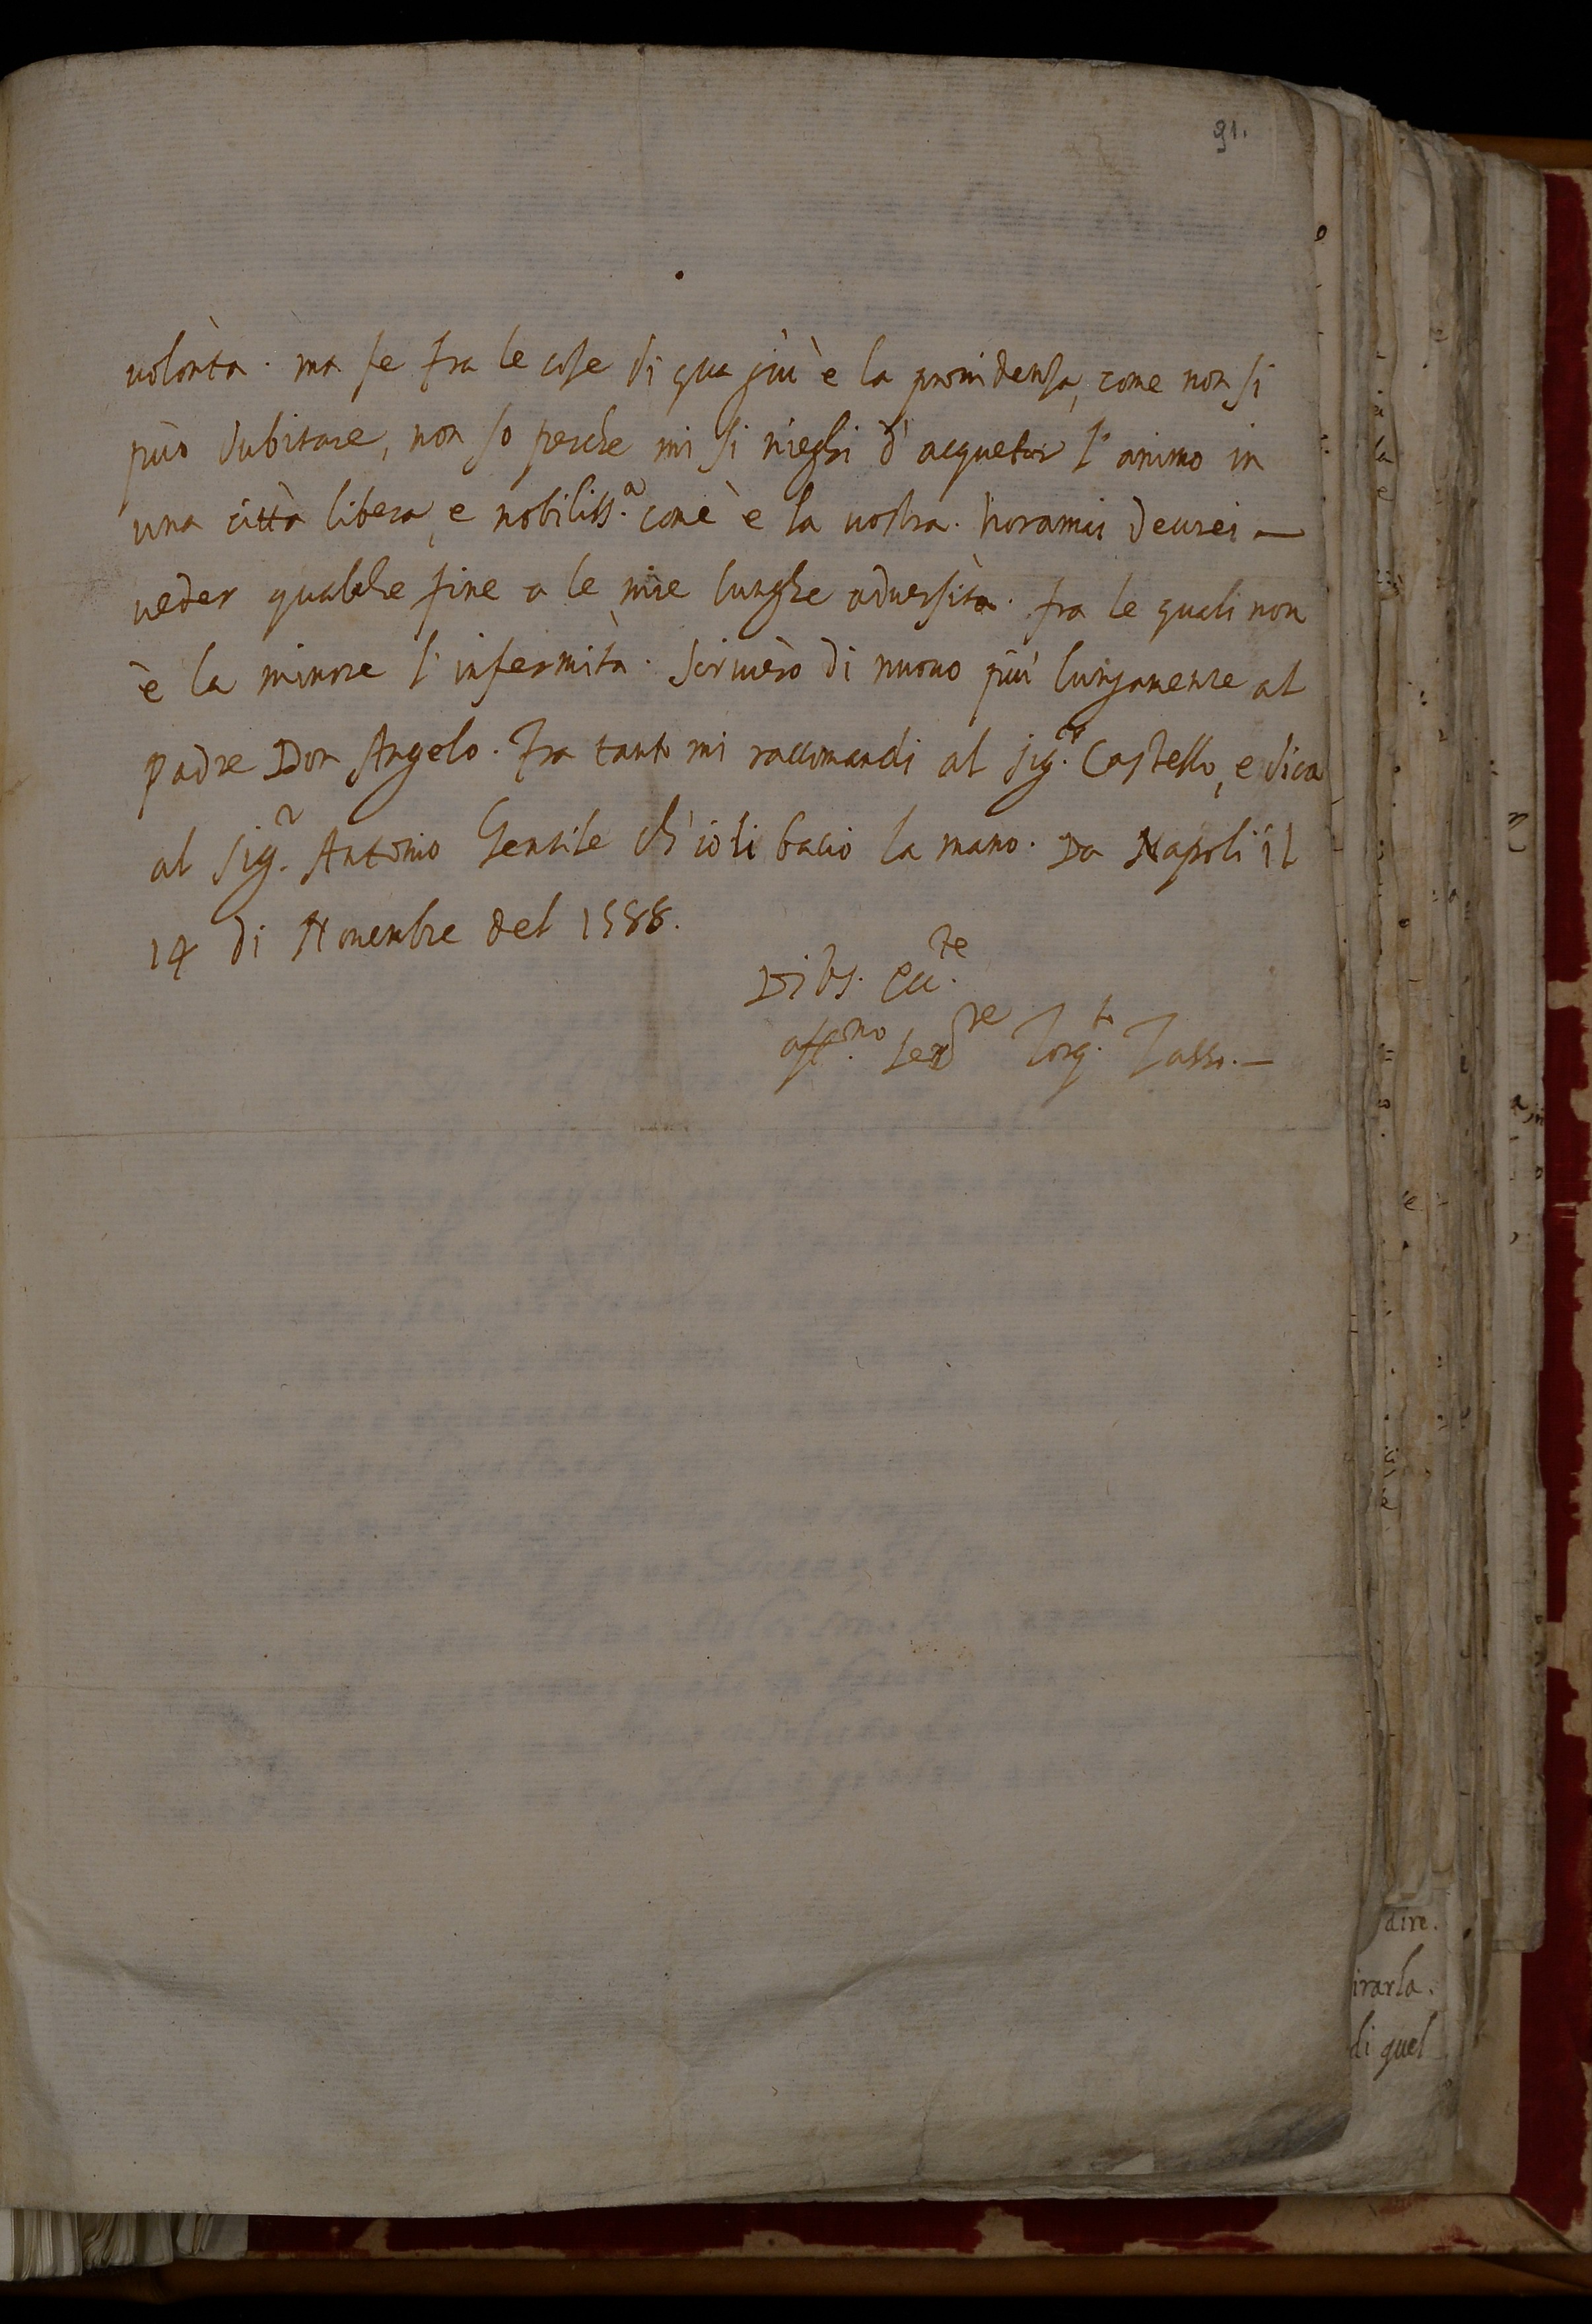 91.
uolontà. ma se fra le cose di qua giù è la prouidenza, come non si
può dubitare, non so perche mi si nieghi d'acquetar l'animo in
una città libera, e nobiliss.a come è la uostra. horamai deurei —
ueder qualche fine a le mie lunghe aduersità. fra le quali non
è la minore l'infermità. scriuerò di nuouo più lungamente al
Padre Don Angelo. Fra tanto mi raccomandi al sig.r Castello, e dica
al sig.r Antonio Gentile ch'io li bacio la mano. Da Napoli il
14 di Nouembre del 1588.
Di V.S. Ecc.te
aff.mo ser.re Torq.to Tasso. —
dire.
irarla.
di quel